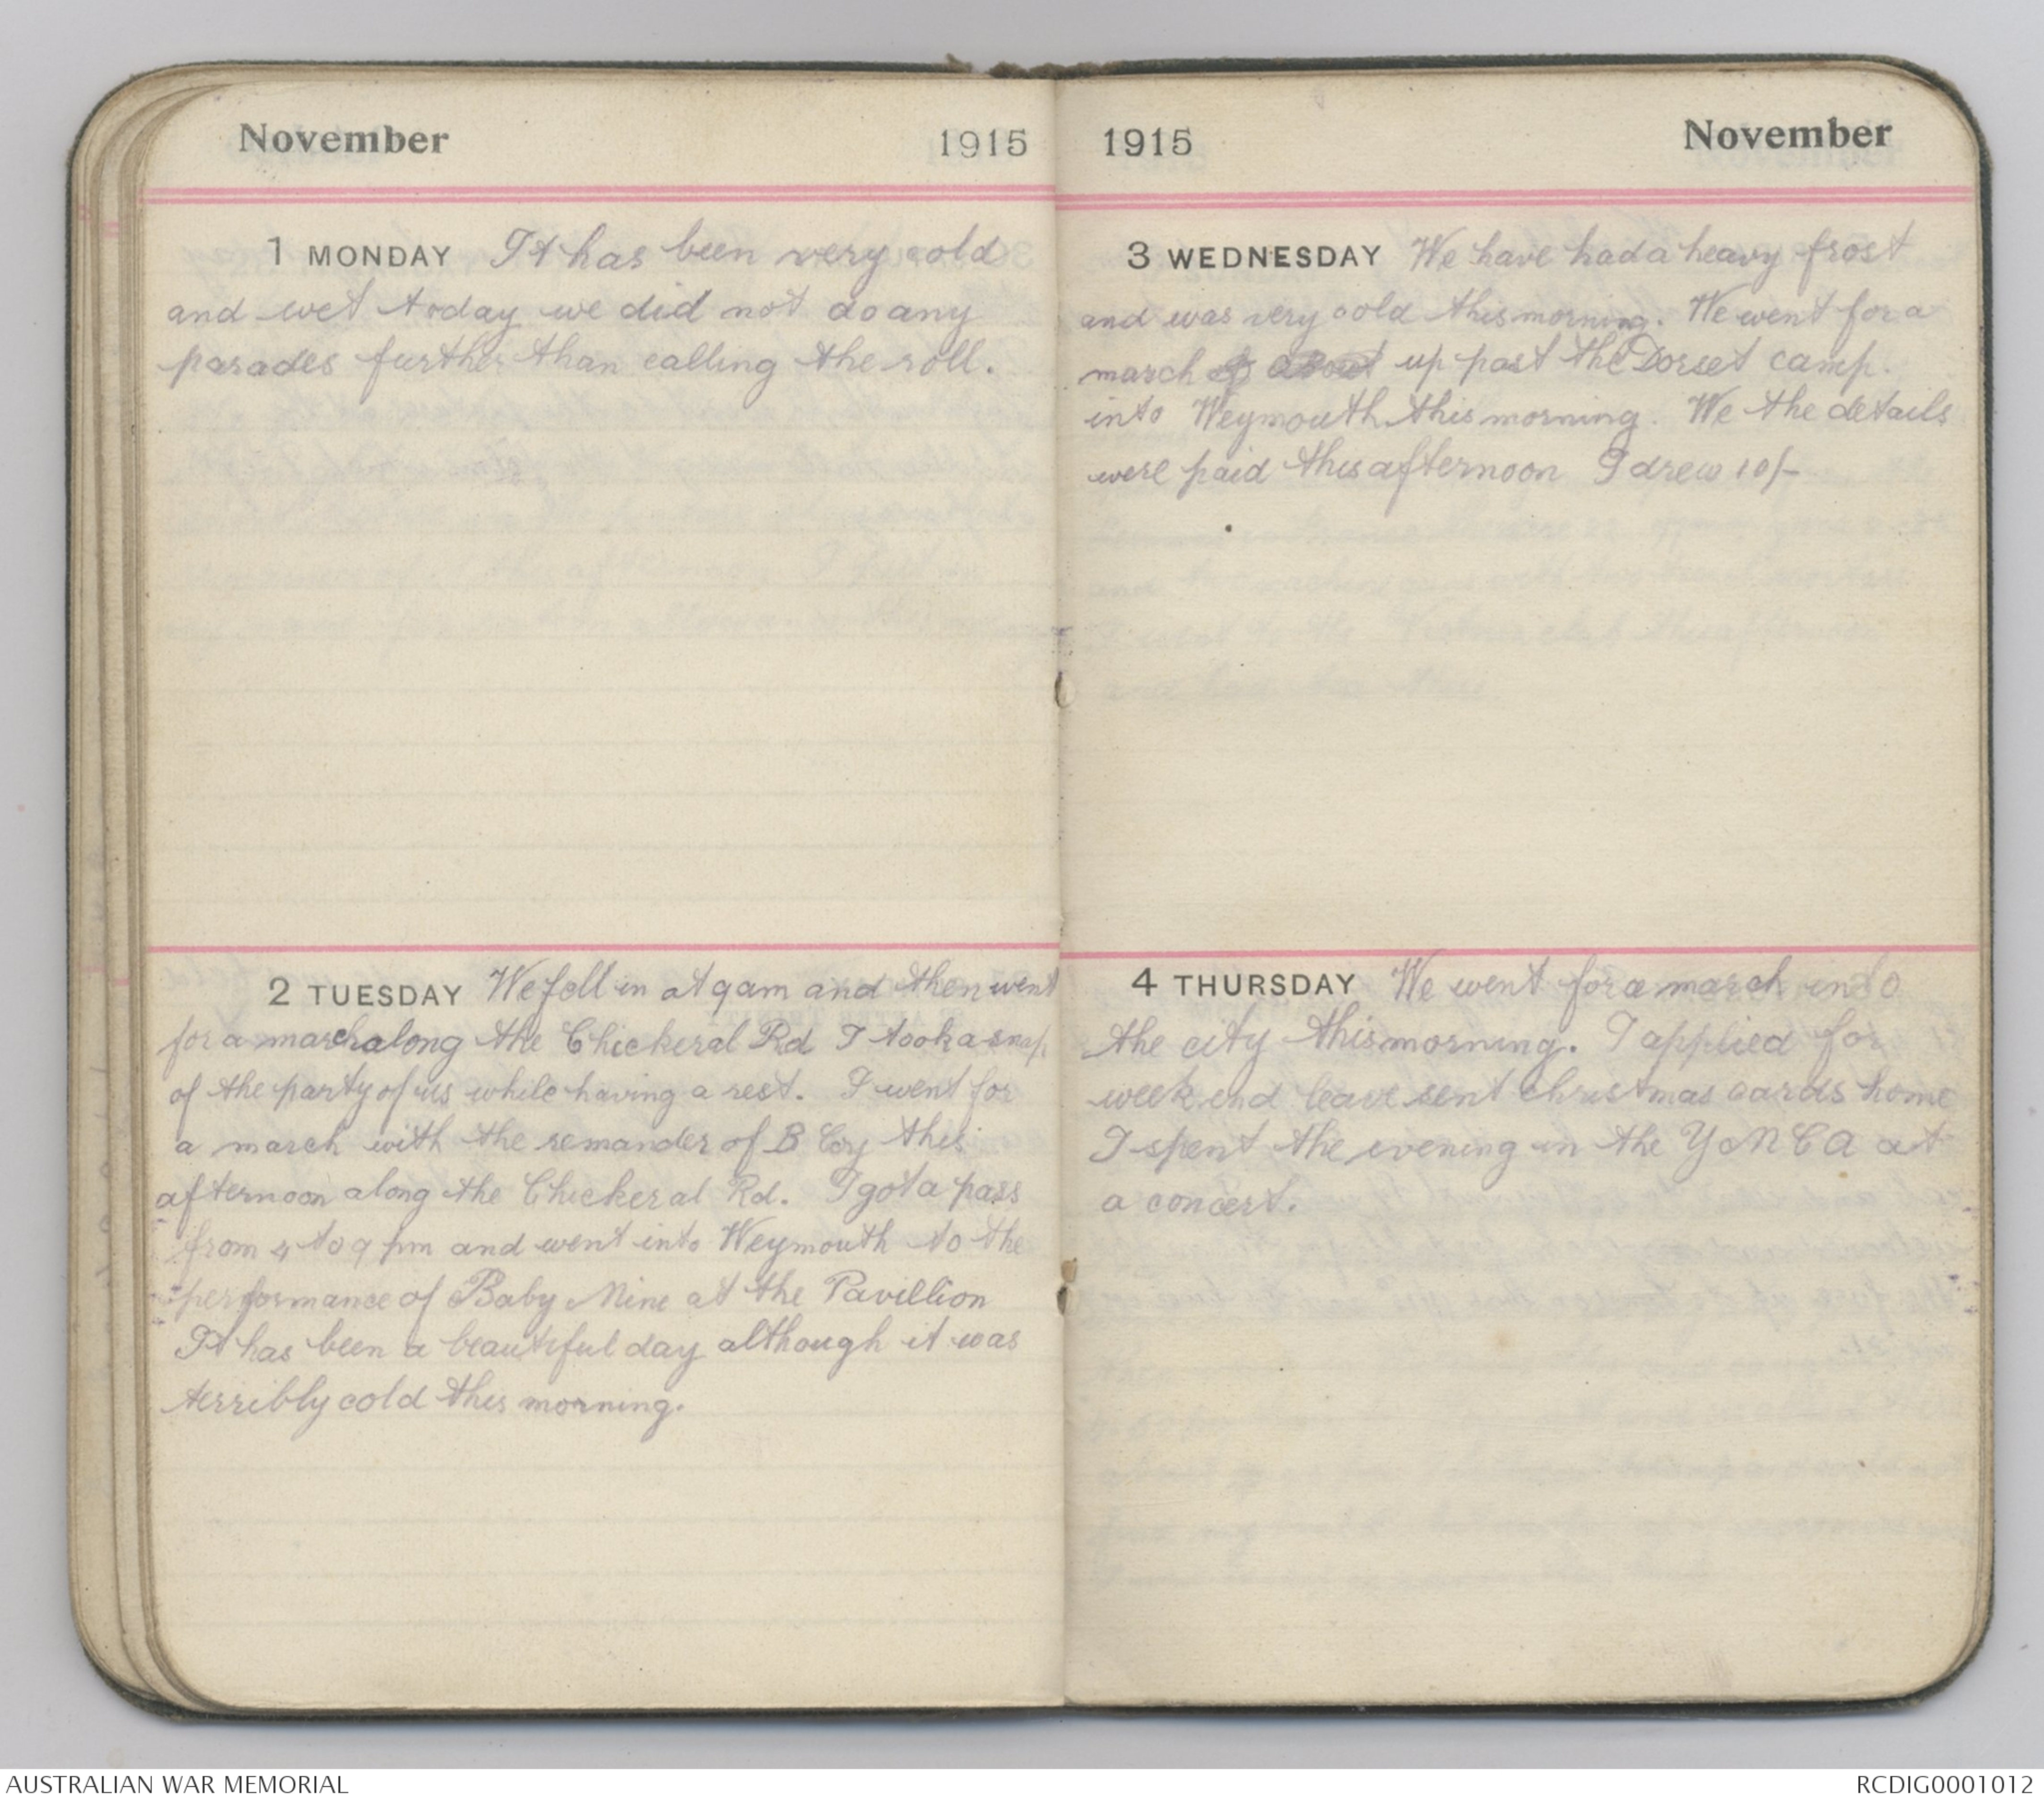 November 1915
1 MONDAY It has been very cold
and wet today we did not do any
parades further than calling the roll.
2 TUESDAY We fell in at 9 am and then went
for a march along the Chickeral Rd I took a snap
of the party of us while having a rest. I went for
a march with the remander of B Coy this
afternoon along the Chickeral Rd. I got a pass
from 4 to 9 pm and went into Weymouth to the
performance of Baby Mine at the Pavillion
It has been a beautiful day although it was
terribly cold this morning.
1915 November
3 WEDNESDAY We have had a heavy frost
and was very cold this morning. We went for a
march about up past the Dorset camp.
into Weymouth this morning. We the details
were paid this afternoon I drew 10/-
4 THURSDAY We went for a march into
the city this morning. I applied for
week end leave sent Christmas cards home
I spent the evening in the YMCA at
a concert.
AUSTRALIAN WAR MEMORIAL
RCDIG0001012